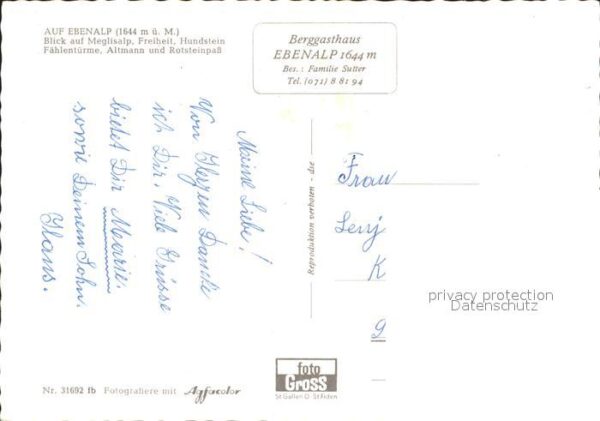 AUF EBENALP (1644 m ü. M.)
Blick auf Meglisalp, Freiheit, Hundstein
Fählentürme, Altmann und Rotsteinpaß
Berggasthaus
EBENALP 1644 m
Bes.: Familie Sutter
Tel. (071) 8 81 94
Meine Liebe!
Von Herzen Danke
ich Dir. Viele Grüsse
bietet Dir Marie.
sowie Deinem Sohn.
Hans.
Reproduktion verboten - dse
Frau
Leny
K
9
privacy protection
Datenschutz
Nr. 31692 fb Fotografiere mit Agfacolor
foto
Gross
St. Gallen O - St. Fiden